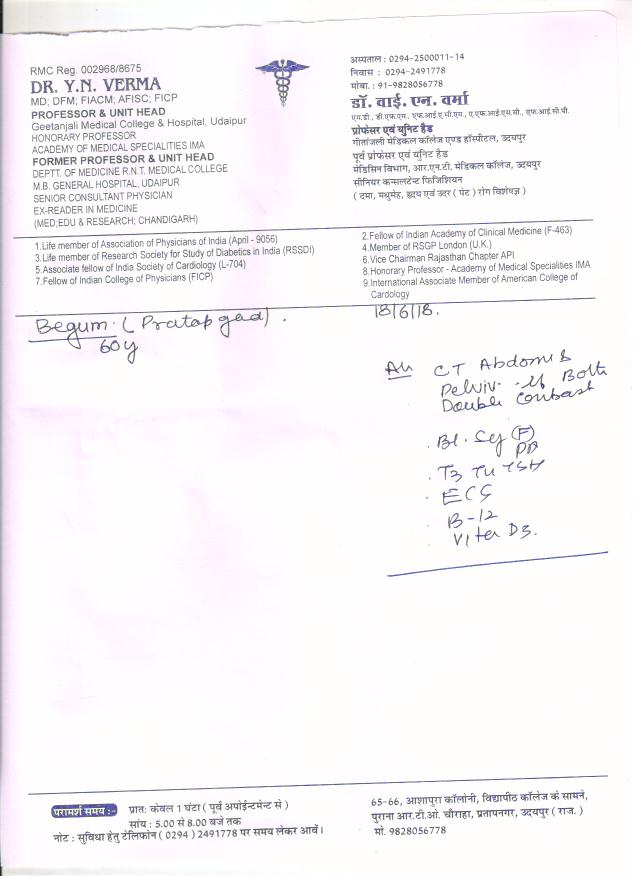 RMC Reg. 002968/8675
DR. Y.N. VERMA
MD; DFM; FIACM; AFISC; FICP
PROFESSOR & UNIT HEAD
Geetanjali Medical College & Hospital, Udaipur
HONORARY PROFESSOR
ACADEMY OF MEDICAL SPECIALITIES IMA
FORMER PROFESSOR & UNIT HEAD
DEPTT. OF MEDICINE R.N.T. MEDICAL COLLEGE
M.B. GENERAL HOSPITAL, UDAIPUR
SENIOR CONSULTANT PHYSICIAN
EX-READER IN MEDICINE
(MED;EDU & RESEARCH; CHANDIGARH)
अस्पताल : 0294-2500011-14
निवास : 0294-2491778
मोबा. : 91-9828056778
डॉ. वाई. एन. वर्मा
एम.डी., डी.एफ.एम., एफ.आई.ए.सी.एम., ए.एफ.आई.एस.सी., एफ.आई.सी.पी.
प्रोफेसर एवं यूनिट हैड
गीतांजली मेडिकल कॉलेज एण्ड हॉस्पीटल, उदयपुर
पूर्व प्रोफेसर एवं यूनिट हैड
मेडिसिन विभाग, आर.एन.टी. मेडिकल कॉलेज, उदयपुर
सीनियर कन्सलटेन्ट फिजिशियन
( दमा, मधुमेह, हृदय एवं उदर ( पेट ) रोग विशेषज्ञ )
1.Life member of Association of Physicians of India (April - 9056)
3.Life member of Research Society for Study of Diabetics in India (RSSDI)
5.Associate fellow of India Society of Cardiology (L-704)
7.Fellow of Indian College of Physicians (FICP)
2.Fellow of Indian Academy of Clinical Medicine (F-463)
4.Member of RSGP London (U.K.)
6.Vice Chairman Rajasthan Chapter API
8.Honorary Professor - Academy of Medical Specialities IMA
9.International Associate Member of American College of
Cardiology
Begum (Pratap gad).
60y
18/6/18.
CT Abdomi &
Pelviv Both
Double Contrast
Bl. Sg (F)
PP
T3 T4 TSH
ECG
B-12
Vit D3.
परामर्श समय :- प्रातः केवल 1 घंटा ( पूर्व अपोईन्टमेन्ट से )
सांय : 5.00 से 8.00 बजे तक
नोट : सुविधा हेतु टेलिफोन ( 0294 ) 2491778 पर समय लेकर आवें।
65-66, आशापुरा कॉलोनी, विद्यापीठ कॉलेज के सामने,
पुराना आर.टी.ओ. चौराहा, प्रतापनगर, उदयपुर ( राज. )
मो. 9828056778